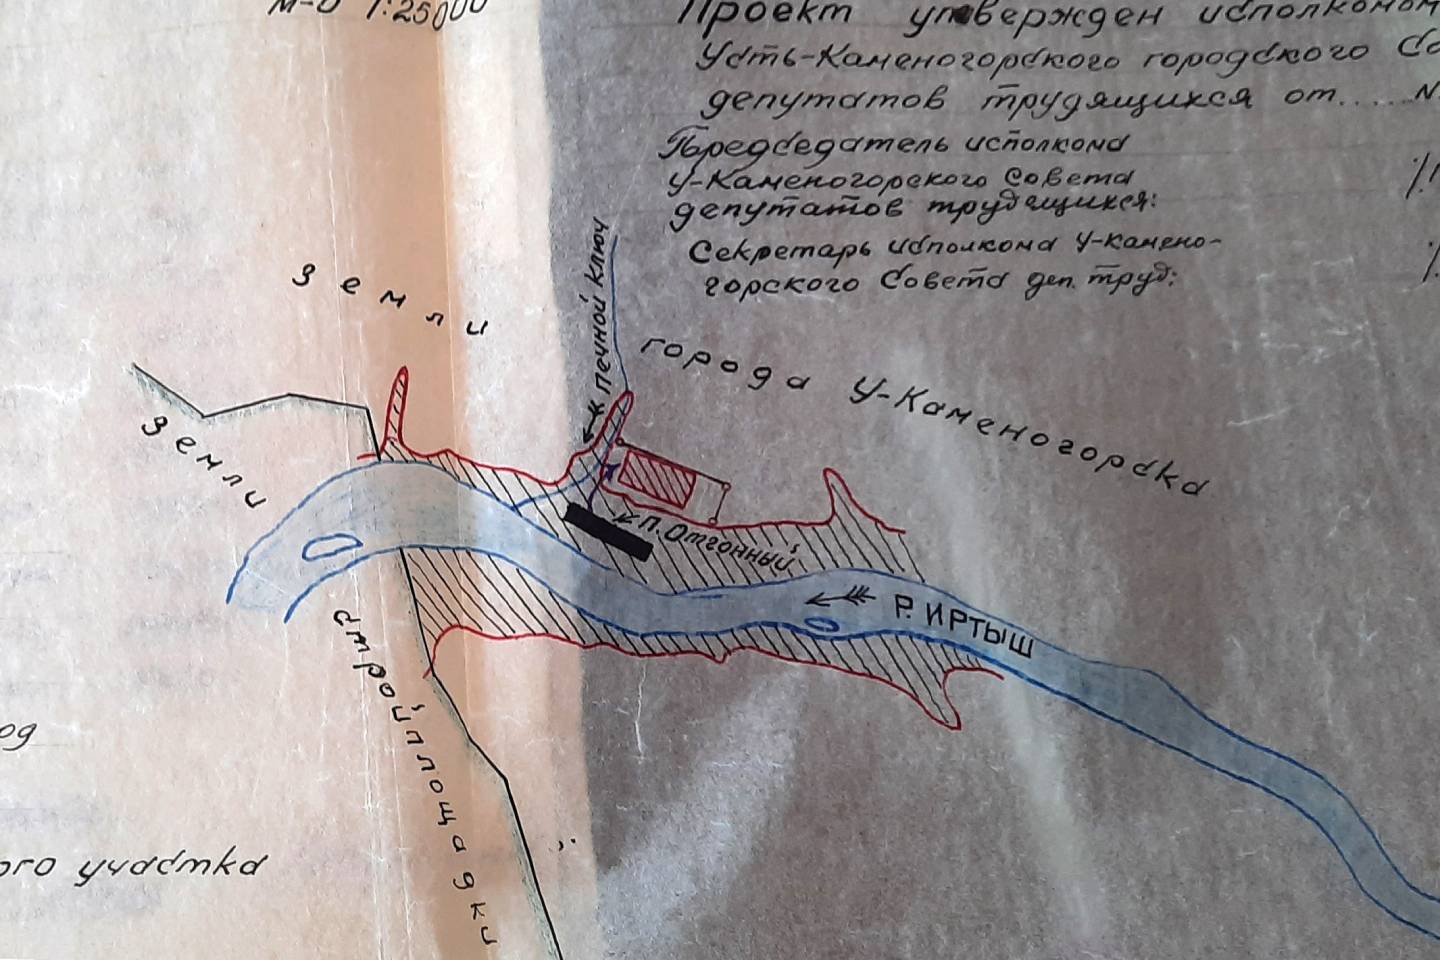 М-б 1:25000
Проект утвержден исполкомом
Усть-Каменогорского городского Со
депутатов трудящихся от..... N.
Председатель исполкома
У-Каменогорского Совета
депутатов трудящихся:
Секретарь исполкома У-камено-
горского Совета деп. труд:
земли
города У-Каменогорска
печной ключ
земли
п. Отгонный
Р. ИРТЫШ
стройплощадки
од
ого участка